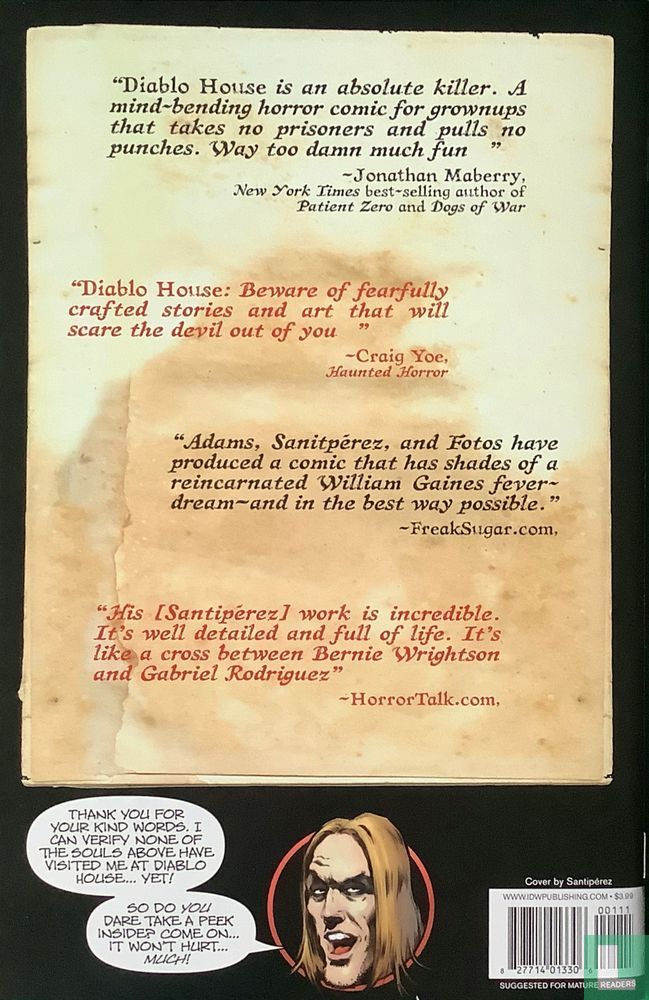 “Diablo House is an absolute killer. A
mind-bending horror comic for grownups
that takes no prisoners and pulls no
punches. Way too damn much fun ”
~Jonathan Maberry,
New York Times best-selling author of
Patient Zero and Dogs of War
“Diablo House: Beware of fearfully
crafted stories and art that will
scare the devil out of you ”
~Craig Yoe,
Haunted Horror
“Adams, Sanitpérez, and Fotos have
produced a comic that has shades of a
reincarnated William Gaines fever-
dream~and in the best way possible.”
~FreakSugar.com,
“His [Santipérez] work is incredible.
It’s well detailed and full of life. It’s
like a cross between Bernie Wrightson
and Gabriel Rodriguez”
~HorrorTalk.com,
THANK YOU FOR
YOUR KIND WORDS. I
CAN VERIFY NONE OF
THE SOULS ABOVE HAVE
VISITED ME AT DIABLO
HOUSE... YET!
SO DO YOU
DARE TAKE A PEEK
INSIDE? COME ON...
IT WON'T HURT...
MUCH!
Cover by Santipérez
WWW.IDWPUBLISHING.COM • $3.99
00111
8 27714 01330 6
SUGGESTED FOR MATURE READERS